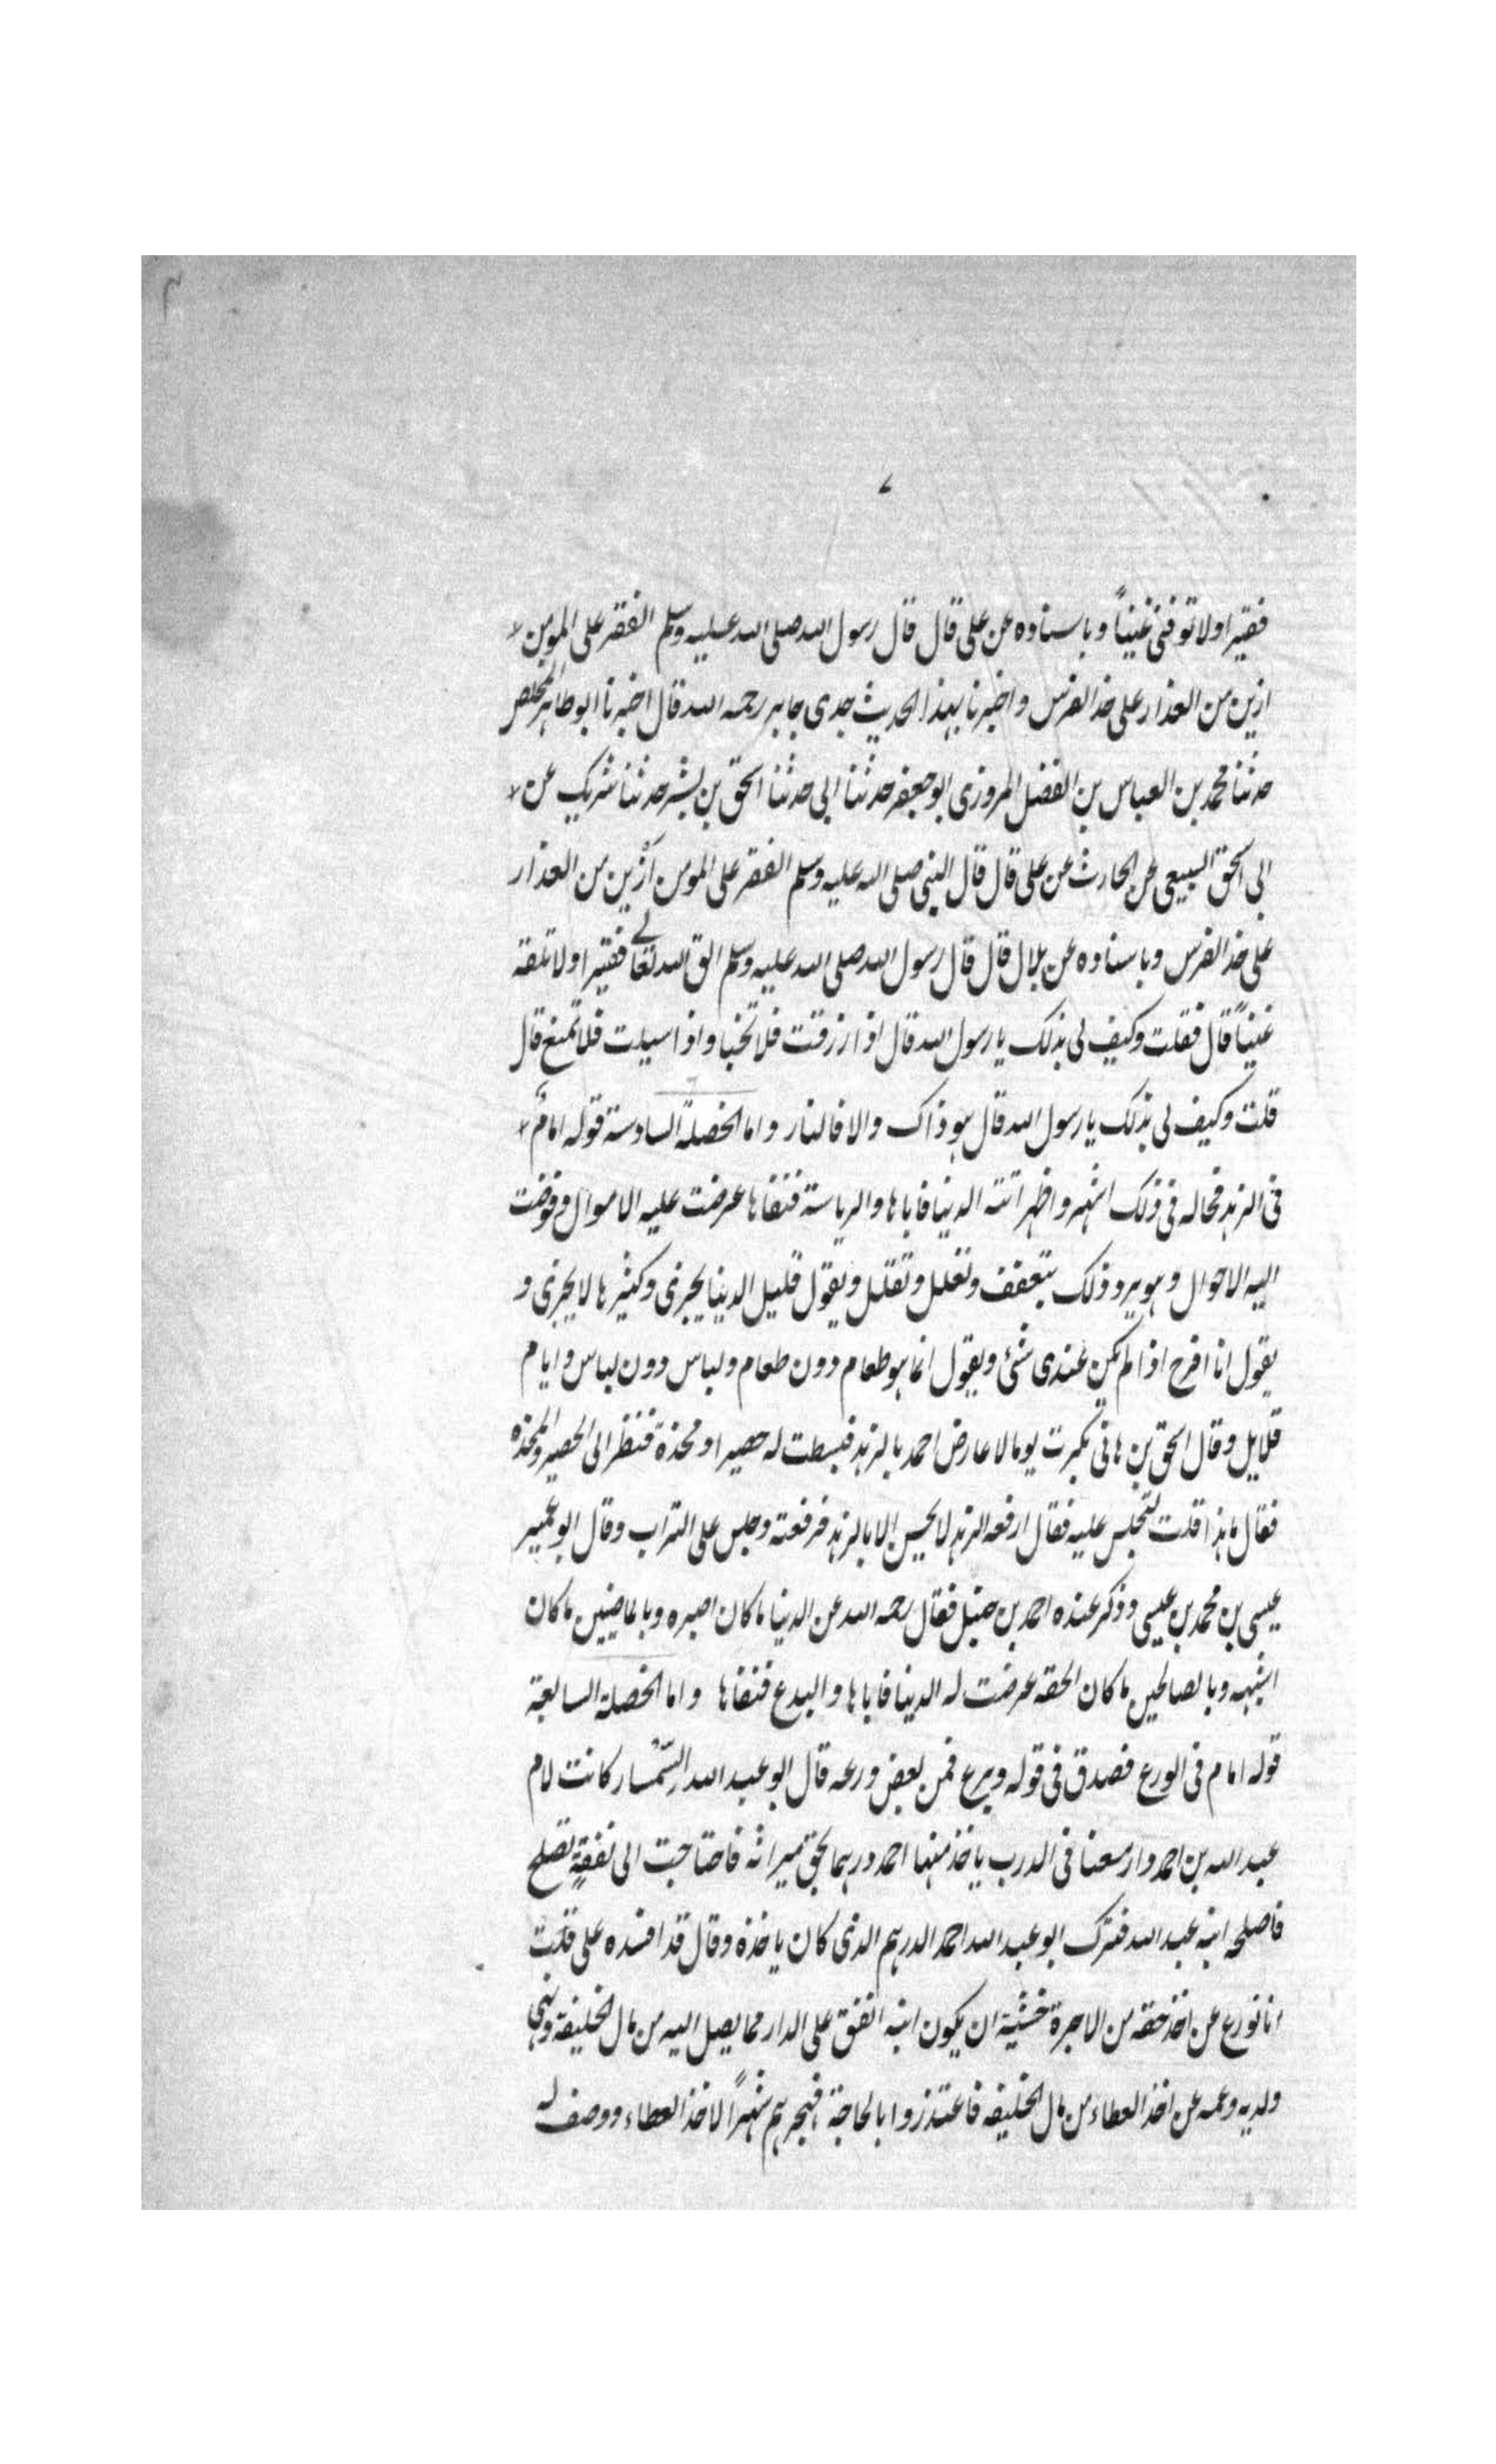 ٧
فقيرا ولا توفنى غنياً وباسناده عن على قال قال رسول الله صلى الله عليه وسلم الفقر على المومن
ازين من العذار على خد الفرس واخبرنا بهذا الحديث جدى جابر رحمه الله قال اخبرنا ابو طاهر المخلص
حدثنا محمد بن العباس بن الفضل المروزى ابو جعفر حدثنا ابى حدثنا اسحق بن بشر حدثنا شريك عن
ابى اسحق السبيعى عن الحارث عن على قال قال النبى صلى الله عليه وسلم الفقر على المومن ازين من العذار
على خد الفرس وباسناده عن بلال قال قال رسول الله صلى الله عليه وسلم الق الله تعالى فقيرا ولا تلقه
غنياً قال فقلت وكيف لى بذلك يا رسول الله قال اذا رزقت فلا تخبا واذا سيلت فلا تمنع قال
قلت وكيف لى بذلك يا رسول الله قال هو ذاك والا فالنار واما الخصلة السادسة قوله امام
فى الزهد فحاله فى ذلك اشهر واظهر اتته الدنيا فاباها والرياسة فنفاها عرضت عليه الاموال وفوضت
اليه الاحوال وهو يرد ذلك بتعفف وتعلل وتقلل ويقول قليل الدنيا يجزى وكثيرها لا يجزى و
يقول انا افرح اذا لم يكن عندى شئ ويقول انما هو طعام دون طعام ولباس دون لباس وايام
قلايل وقال اسحق بن هانى بكرت يوما لاعارض احمد بالزهد فبسطت له حصيرا ومخذة فنظر الى الحصير والمخذه
فقال ما هذا قلت لتجلس عليه فقال ارفعه الزهد لا يحسن الا بالزهد فرفعته وجلس على التراب وقال ابو عمير
عيسى بن محمد بن عيسى وذكر عنده احمد بن حنبل فقال رحمه الله عن الدنيا ما كان اصبره وبالماضيين ما كان
اشبهه وبالصالحين ما كان الحقه عرضت له الدنيا فاباها والبدع فنفاها واما الخصلة السابعة
قوله امام فى الورع فصدق فى قوله وبرع فمن بعض ورعه قال ابو عبد الله السمسار كانت لام
عبد الله بن احمد دار معنا فى الدرب ياخذ منها احمد درهما بحق ميراثه فاحتاجت الى نفقة تصلح
فاصلحه ابنه عبد الله فترك ابو عبد الله احمد الدرهم الذى كان ياخذه وقال قد افسده على قلت
انا تورع عن اخذ حقه من الاجرة خشية ان يكون ابنه انفق على الدار مما يصل اليه من مال الخليفة ونهى
ولديه وعمه عن اخذ العطاء من مال الخليفه فاعتذروا بالحاجة فهجرهم شهراً لاخذ العطاء ووصف له